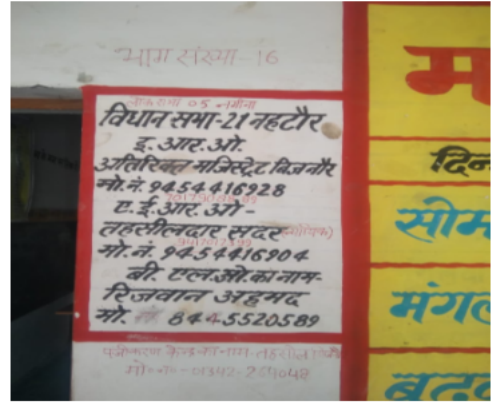 भाग संख्या-16
लोक सभा 05 नगीना
विधान सभा-21 नहटौर
इ.आर.ओ.
अतिरिक्त मजिस्ट्रेट बिजनौर
मो.नं. 9454416928
ए.ई.आर.ओ-
तहसीलदार सदर
मो.नं. 9454416904
बी एल.ओ.का नाम-
रिजवान अहमद
मो. 8445520589
पंजीकरण केन्द्र का नाम-तहसील
म
दिन
सोम
मंगल
बुद्ध